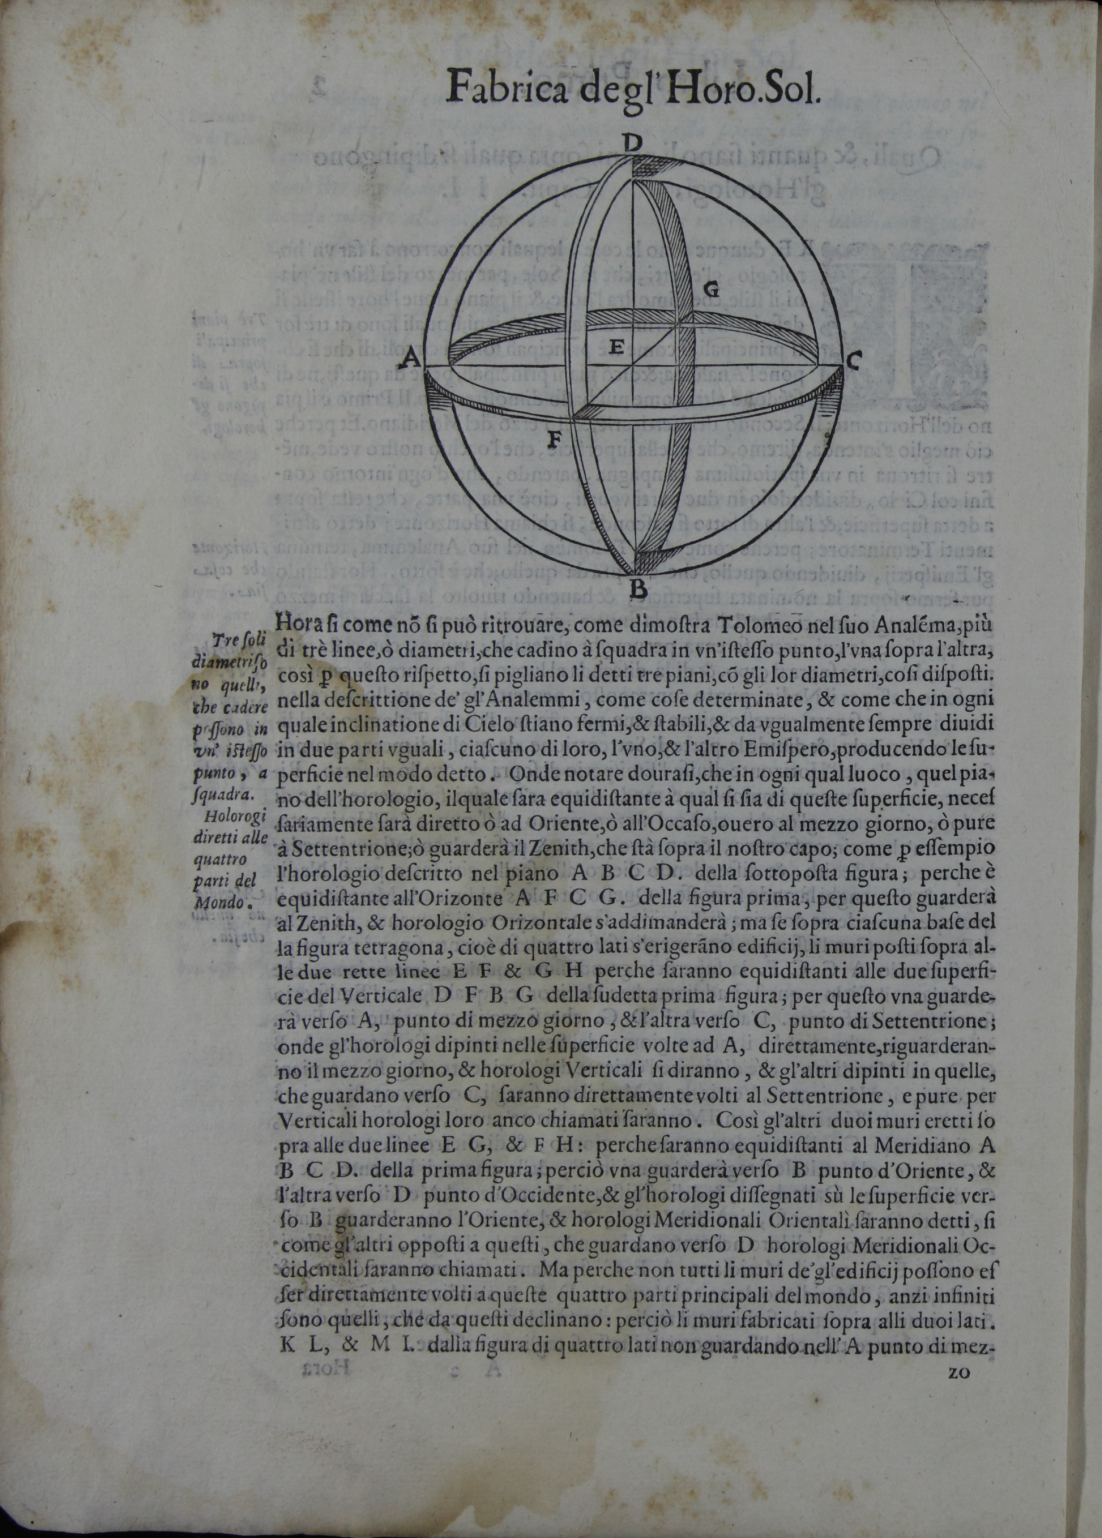 Fabrica degl'Horo.Sol.
D
G
A
E
C
F
B
Hora ſi come nõ ſi può ritrouare, come dimoſtra Tolomeo nel ſuo Analéma,più
di trè linee,ò diametri,che cadino à ſquadra in vn'iſteſſo punto,l'vna ſopra l'altra,
così ꝑ queſto riſpetto,ſi pigliano li detti tre piani,cõ gli lor diametri,coſi diſpoſti.
nella deſcrittione de' gl'Analemmi, come coſe determinate, & come che in ogni
quale inclinatione di Cielo ſtiano fermi,& ſtabili,& da vgualmente ſempre diuidi
in due parti vguali, ciaſcuno di loro, l'vno,& l'altro Emiſpero,producendo le ſu-
perficie nel modo detto. Onde notare douraſi,che in ogni qual luoco, quel pia-
no dell'horologio, ilquale ſara equidiſtante à qual ſi ſia di queſte ſuperficie, neceſ
ſariamente ſarà diretto ò ad Oriente,ò all'Occaſo,ouero al mezzo giorno, ò pure
à Settentrione;ò guarderà il Zenith,che ſtà ſopra il noſtro capo; come ꝑ eſſempio
l'horologio deſcritto nel piano A B C D. della ſottopoſta figura; perche è
equidiſtante all'Orizonte A F C G. della figura prima, per queſto guarderà
al Zenith, & horologio Orizontale s'addimanderà; ma ſe ſopra ciaſcuna baſe del
la figura tetragona, cioè di quattro lati s'erigerãno edificij, li muri poſti ſopra al-
le due rette linee E F & G H perche ſaranno equidiſtanti alle due ſuperfi-
cie del Verticale D F B G della ſudetta prima figura; per queſto vna guarde-
rà verſo A, punto di mezzo giorno, & l'altra verſo C, punto di Settentrione;
onde gl'horologi dipinti nelle ſuperficie volte ad A, direttamente,riguarderan-
no il mezzo giorno, & horologi Verticali ſi diranno, & gl'altri dipinti in quelle,
che guardano verſo C, ſaranno direttamente volti al Settentrione, e pure per
Verticali horologi loro anco chiamati ſaranno. Così gl'altri duoi muri eretti ſo
pra alle due linee E G, & F H: perche ſaranno equidiſtanti al Meridiano A
B C D. della prima figura; perciò vna guarderà verſo B punto d'Oriente, &
l'altra verſo D punto d'Occidente,& gl'horologi diſſegnati sù le ſuperficie ver-
ſo B guarderanno l'Oriente, & horologi Meridionali Orientali ſaranno detti, ſi
come gl'altri oppoſti a queſti, che guardano verſo D horologi Meridionali Oc-
cidentali ſaranno chiamati. Ma perche non tutti li muri de'gl'edificij poſſono eſ
ſer direttamente volti a queſte quattro parti principali del mondo, anzi infiniti
ſono quelli, che da queſti declinano: perciò li muri fabricati ſopra alli duoi lati.
K L, & M I. dalla figura di quattro lati non guardando nell' A punto di mez-
zo
Tre ſoli
diametri ſo
no quelli,
che cadere
poſſono in
vn' iſteſſo
punto, a
ſquadra.
Holorogi
diretti alle
quattro
parti del
Mondo.